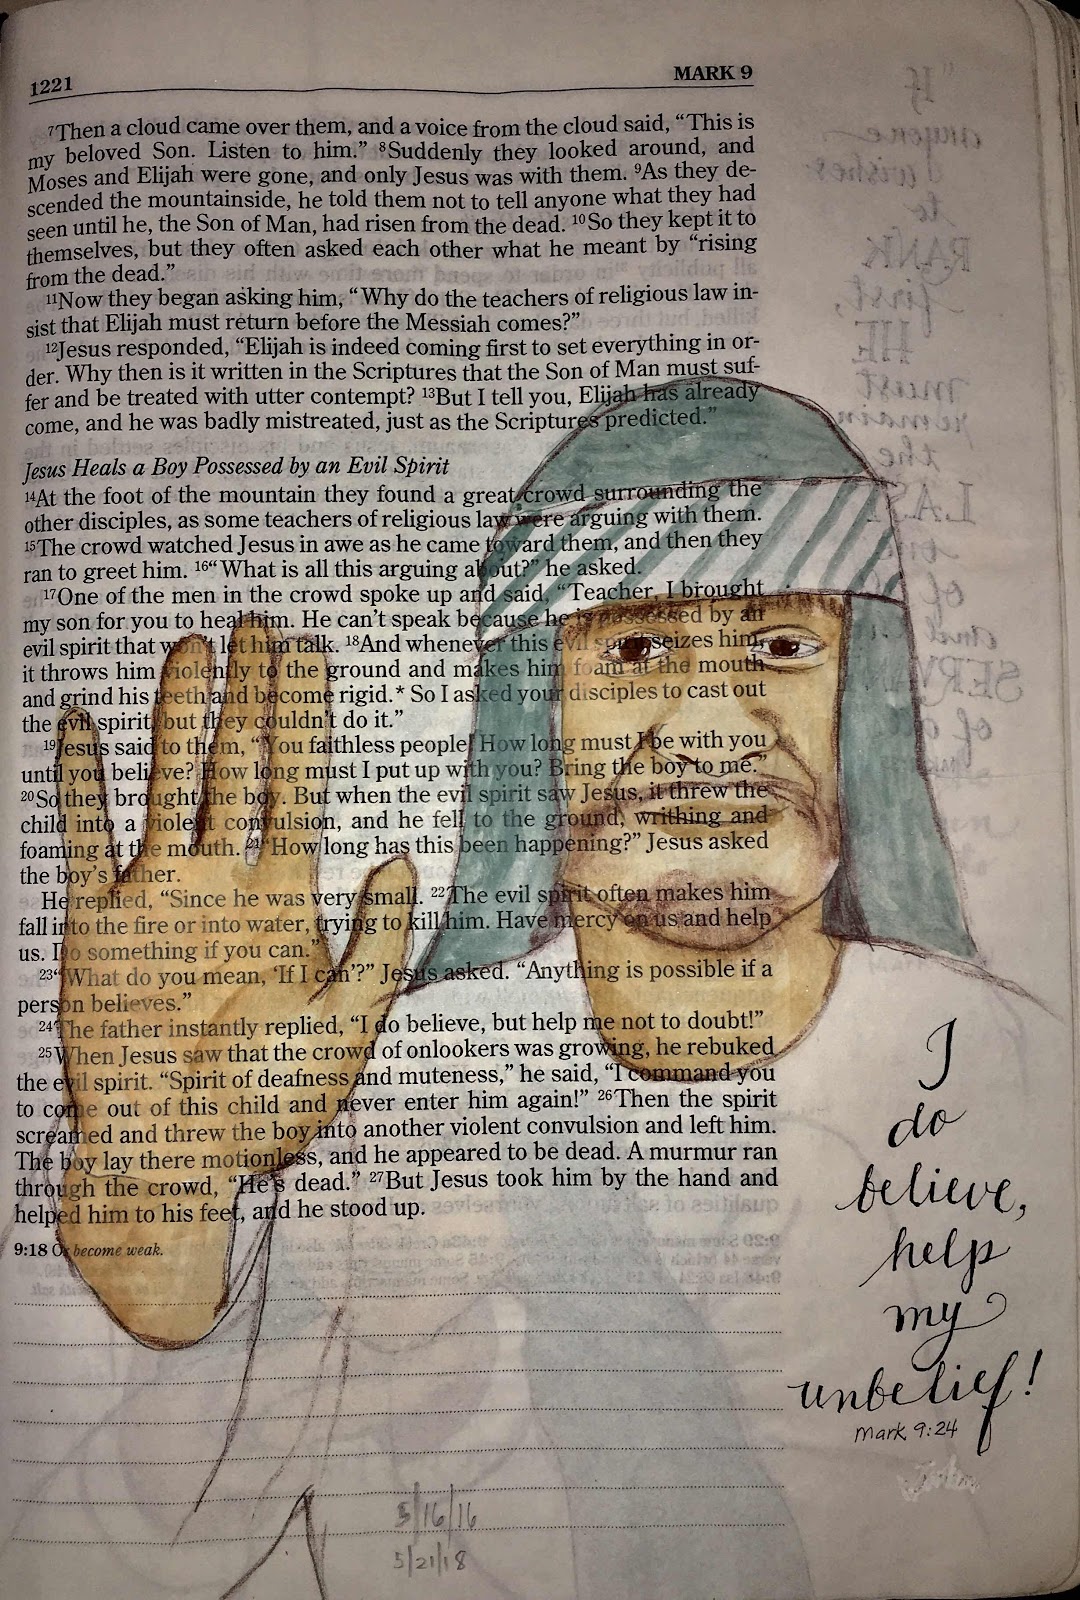 1221
MARK 9
⁷Then a cloud came over them, and a voice from the cloud said, “This is
my beloved Son. Listen to him.” ⁸Suddenly they looked around, and
Moses and Elijah were gone, and only Jesus was with them. ⁹As they de-
scended the mountainside, he told them not to tell anyone what they had
seen until he, the Son of Man, had risen from the dead. ¹⁰So they kept it to
themselves, but they often asked each other what he meant by “rising
from the dead.”
¹¹Now they began asking him, “Why do the teachers of religious law in-
sist that Elijah must return before the Messiah comes?”
¹²Jesus responded, “Elijah is indeed coming first to set everything in or-
der. Why then is it written in the Scriptures that the Son of Man must suf-
fer and be treated with utter contempt? ¹³But I tell you, Elijah has already
come, and he was badly mistreated, just as the Scriptures predicted.”
Jesus Heals a Boy Possessed by an Evil Spirit
¹⁴At the foot of the mountain they found a great crowd surrounding the
other disciples, as some teachers of religious law were arguing with them.
¹⁵The crowd watched Jesus in awe as he came toward them, and then they
ran to greet him. ¹⁶“What is all this arguing about?” he asked.
¹⁷One of the men in the crowd spoke up and said, “Teacher, I brought
my son for you to heal him. He can’t speak because he is possessed by an
evil spirit that won’t let him talk. ¹⁸And whenever this evil spirit seizes him,
it throws him violently to the ground and makes him foam at the mouth
and grind his teeth and become rigid.* So I asked your disciples to cast out
the evil spirit, but they couldn’t do it.”
¹⁹Jesus said to them, “You faithless people! How long must I be with you
until you believe? How long must I put up with you? Bring the boy to me.”
²⁰So they brought the boy. But when the evil spirit saw Jesus, it threw the
child into a violent convulsion, and he fell to the ground, writhing and
foaming at the mouth. ²¹“How long has this been happening?” Jesus asked
the boy’s father.
He replied, “Since he was very small. ²²The evil spirit often makes him
fall into the fire or into water, trying to kill him. Have mercy on us and help
us. Do something if you can.”
²³“What do you mean, ‘If I can’?” Jesus asked. “Anything is possible if a
person believes.”
²⁴The father instantly replied, “I do believe, but help me not to doubt!”
²⁵When Jesus saw that the crowd of onlookers was growing, he rebuked
the evil spirit. “Spirit of deafness and muteness,” he said, “I command you
to come out of this child and never enter him again!” ²⁶Then the spirit
screamed and threw the boy into another violent convulsion and left him.
The boy lay there motionless, and he appeared to be dead. A murmur ran
through the crowd, “He’s dead.” ²⁷But Jesus took him by the hand and
helped him to his feet, and he stood up.
9:18 Or become weak.
I
do
believe,
help
my
unbelief!
Mark 9:24
5/16/16
5/21/18